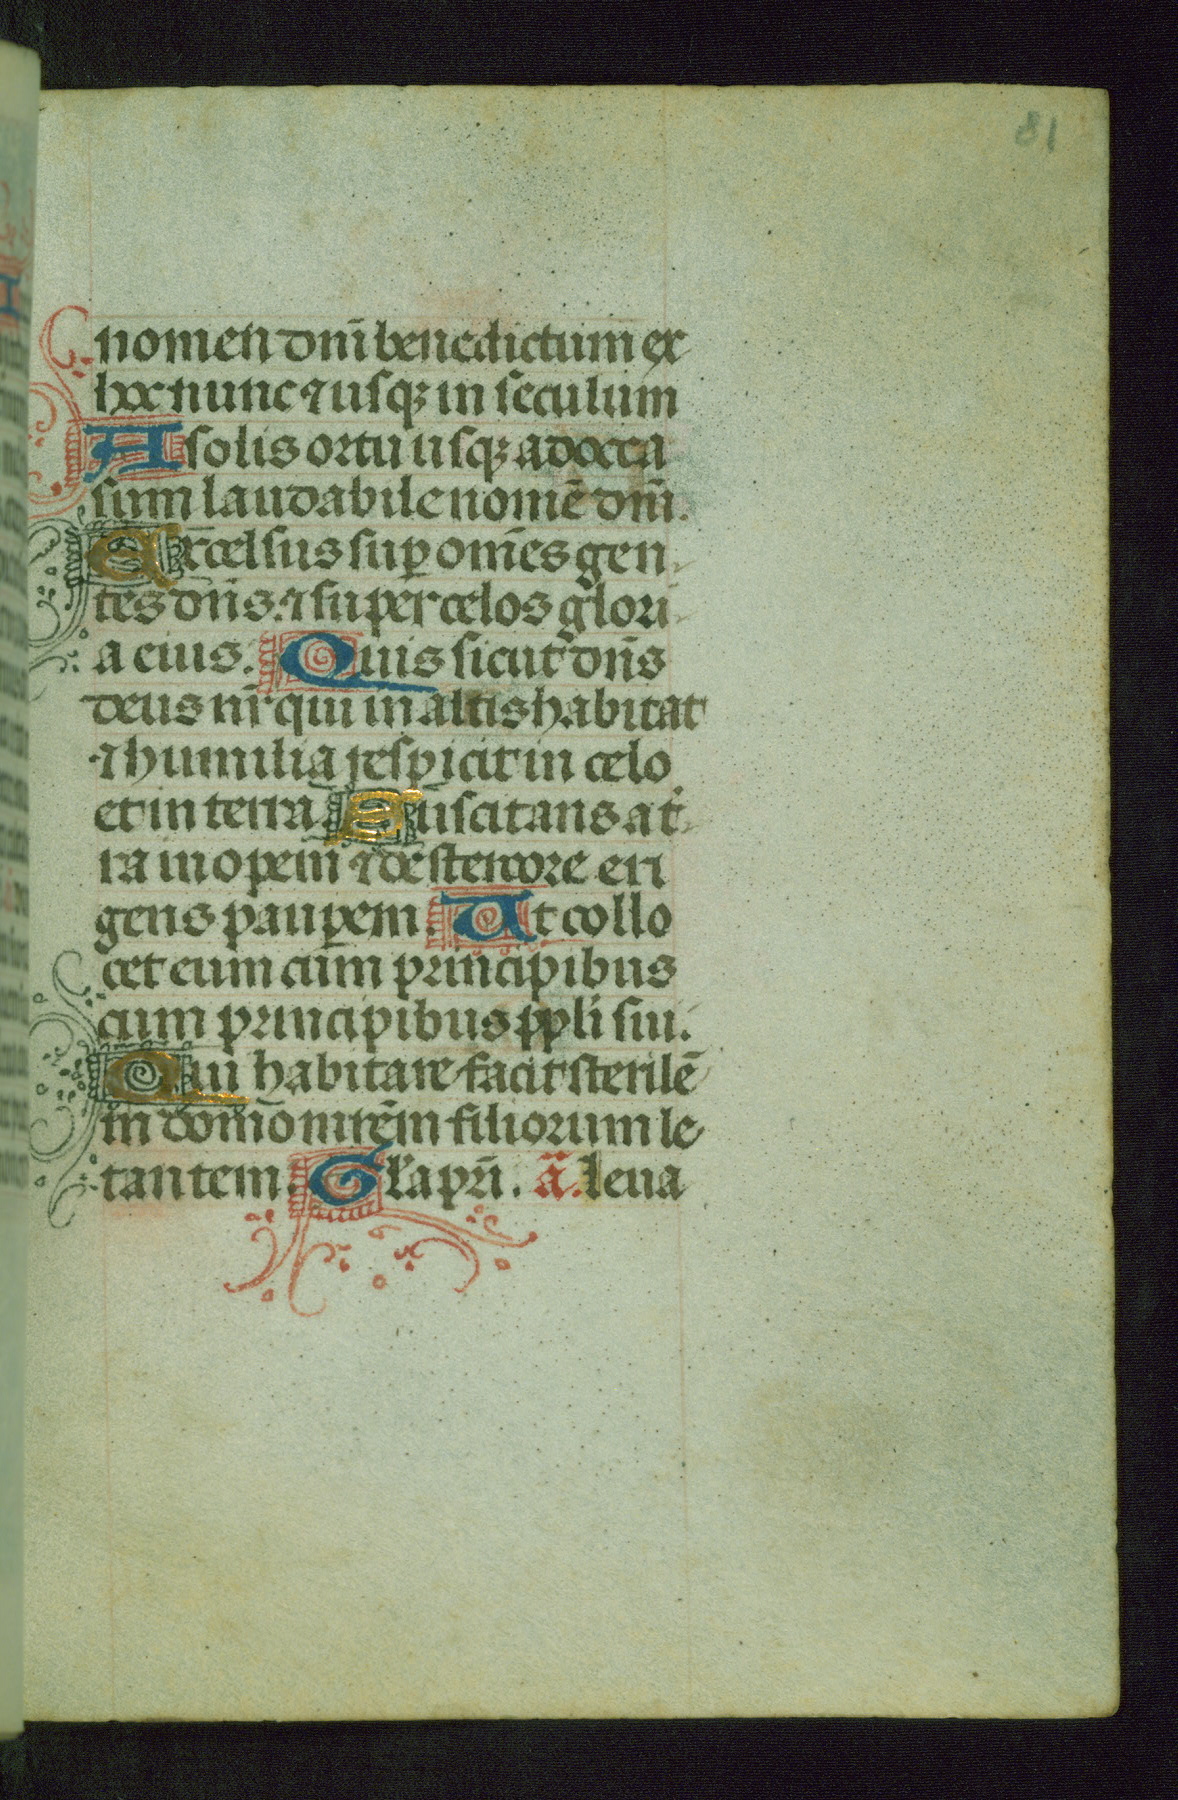 81
nomen dnī benedictum ex
hoc nunc ⁊ usqꝫ in seculum
A solis ortu usqꝫ ad occa
sum laudabile nomē dnī.
Excelsus suꝑ om̄es gen-
tes dn̄s. ⁊ super celos glori-
a eius. Quis sicut dn̄s
deus nr̄ qui in altis habitat
⁊ humilia respicit in celo
et in terra. Suscitans a t̄-
ra inopem ⁊ de stercore eri
gens pauꝑem. Ut collo
cet eum cum principibus
cum principibus ppli sui.
Qui habitare facit sterilē
in domo mr̄em filiorum le
tantem. Gl'a pr̄i. ā. leua